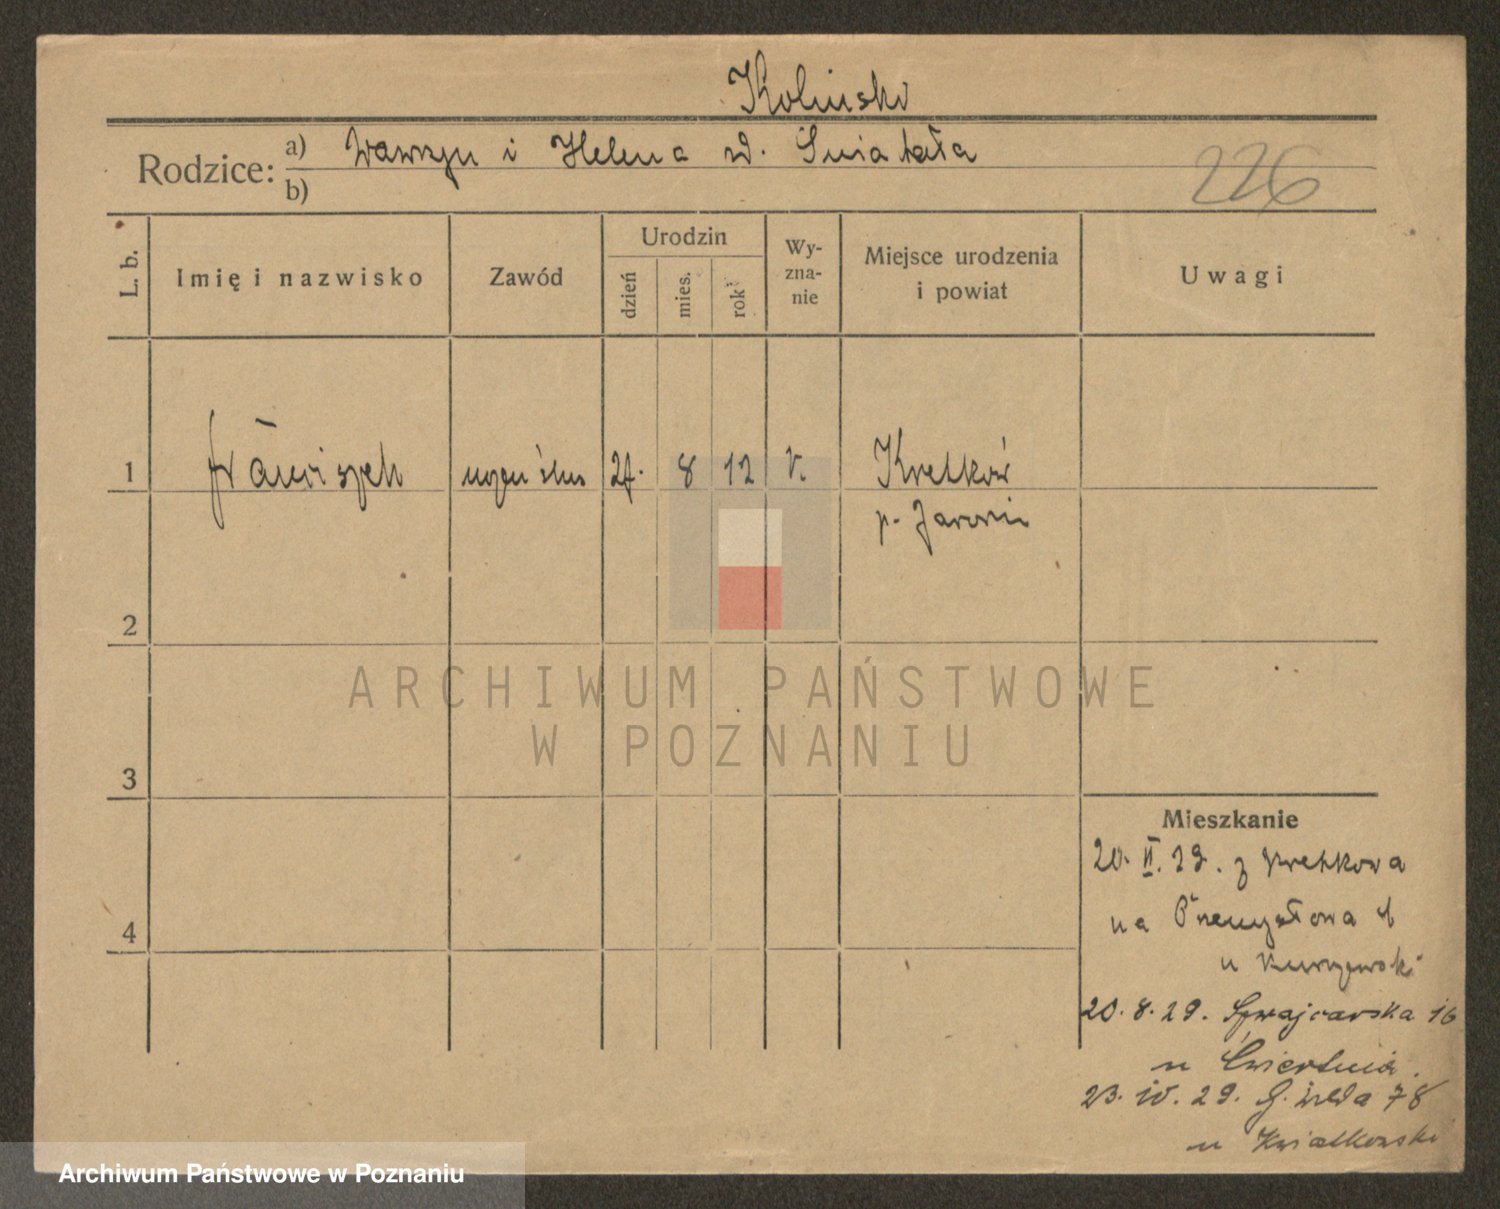 Koliński
Rodzice: a) Wawrzyn i Helena zd. Świtała
b)
226
L. b.
Imię i nazwisko
Zawód
Urodzin
dzień
mies.
rok
Wy-
zna-
nie
Miejsce urodzenia
i powiat
Uwagi
1 Franciszek 27. 8 12 k. Kretków
p. Jarocin
2
3
4
Mieszkanie
20. II. 29. z Kretkowa
na Przemysłowa
u
20. 8. 29. Szwajcarska 16
u Ćwiertnia.
23. 10. 29. G. Wilda 78
u Kwiatkowski
ARCHIWUM PAŃSTWOWE
W POZNANIU
Archiwum Państwowe w Poznaniu